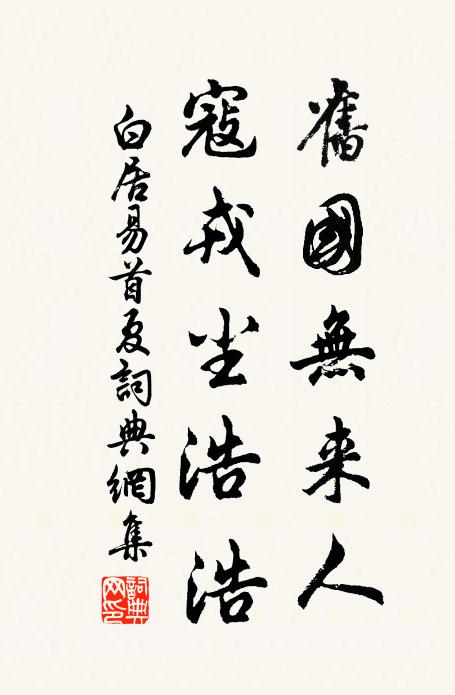 舊國無来人
寇戎尘浩浩
白居易首夏詞典網集
詞典網印